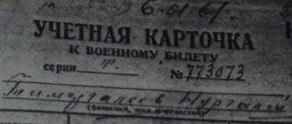 УЧЕТНАЯ КАРТОЧКА
К ВОЕННОМУ БИЛЕТУ
серии № 773073
Тимургалеев Нургалей
(фамилия, имя и отчество)